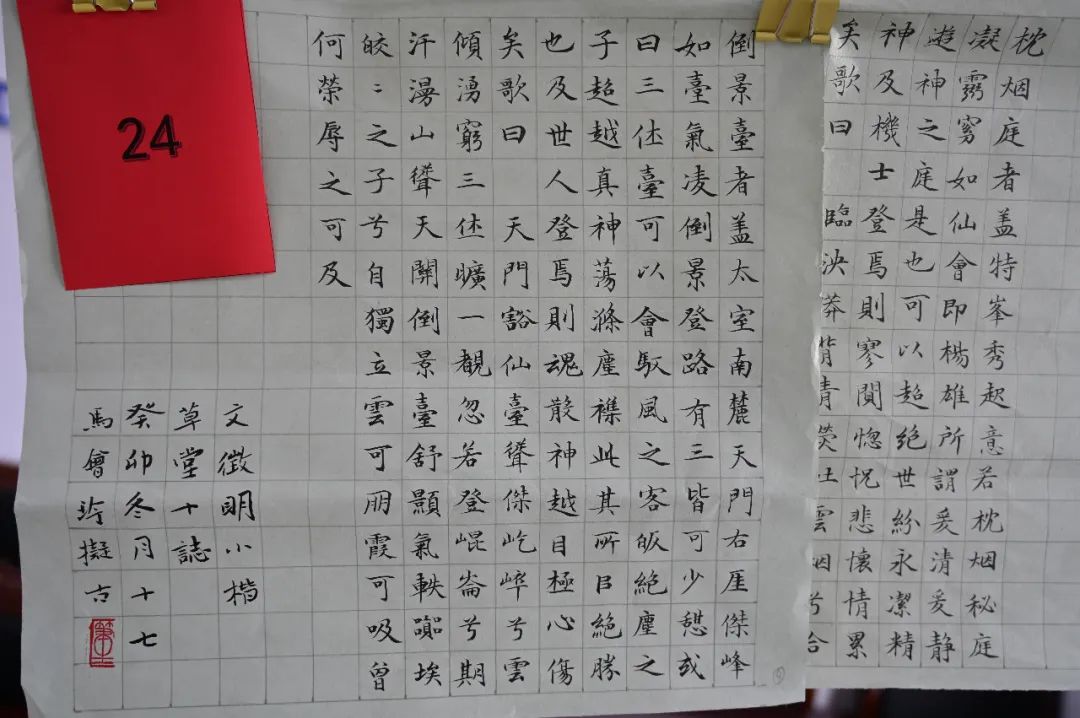 枕烟庭者盖特峯秀起意若枕烟秘庭
凝窮窅如仙會即楊雄所謂爰清爰静
遊神之庭是也可以超絕世紛永潔精
神及機士登焉則寥闃惚怳悲懷情累
矣歌曰 臨泱漭背青熒吐雲烟兮合
倒景臺者盖太室南麓天門右厓傑峰
如臺氣凌倒景登路有三皆可少憩或
曰三休臺可以會馭風之客皈絕塵之
子超越真神蕩滌塵襍此其所㠯絕勝
也及世人登焉則魂散神越目極心傷
矣歌曰 天門豁仙臺聳傑屹崒兮雲
傾湧窮三休曠一觀忽若登崐崙兮期
汗漫山聳天關倒景臺舒顥氣軼囂埃
皎〻之子兮自獨立雲可朋霞可吸曾
何榮辱之可及
文徵明小楷
草堂十誌
癸卯冬月十七
馬會玲擬古
24